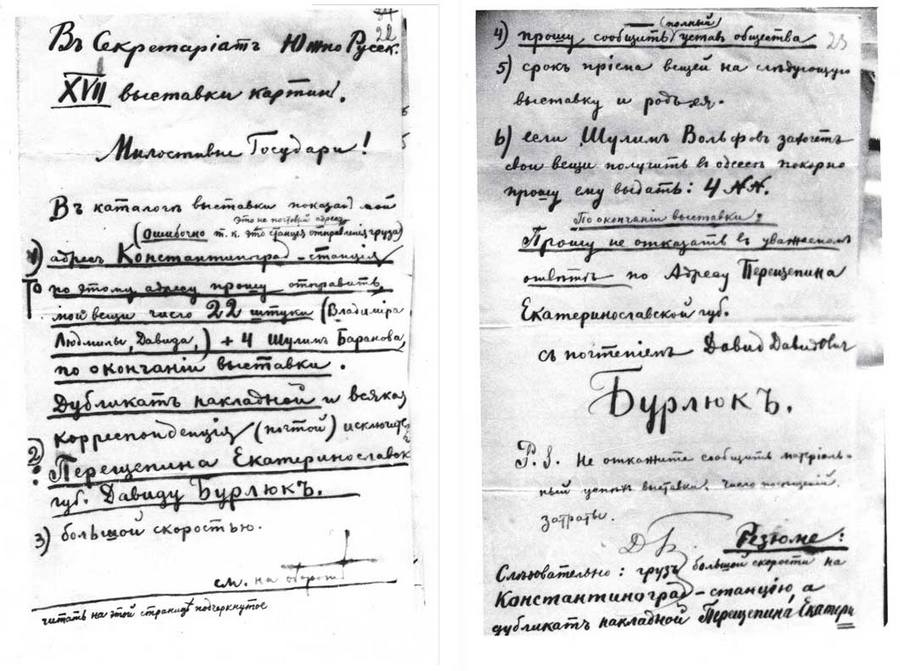 22
Въ Секретаріатъ Южно Русск.
XVII выставки картин.
Милостивые Государи!
Въ каталоге выставки показан мой
это не почтовый адрес
(ошибочно т. к. это станція отправленія груза)
1) адресъ Константиноград-станція
по этому адресу прошу отправить
мои вещи число 22 штуки (Владиміра
Людмилы, Давида,) + 4 Шулим Баранова
по окончаніи выставки.
Дубликатъ накладной и всякая
корреспонденція (почтой) исключит.
2) Перещепина Екатеринославск
губ. Давиду Бурлюкъ.
3) большой скоростью.
см. на оборот
читать на этой странице подчеркнутое
23
(полный)
4) прошу сообщить устав общества
5) срокъ пріема вещей на следующую
выставку и
6) если Шулимъ Вольфовъ захочетъ
свои вещи получить в одессе покорно
прошу ему выдать: 4 NN.
По окончаніи выставки:
Прошу не отказать в уважаемом
ответе по Адресу Перещепина
Екатеринославской губ.
съ почтеніем Давид Давидович
Бурлюкъ.
P. S. Не откажите сообщить матеріаль-
ный успех выставки, число посещений,
затраты.
ДБ
Резюме:
Следовательно: грузъ большой скорости на
Константиноград-станцію, а
дубликатъ накладной Перещепина, Екатери